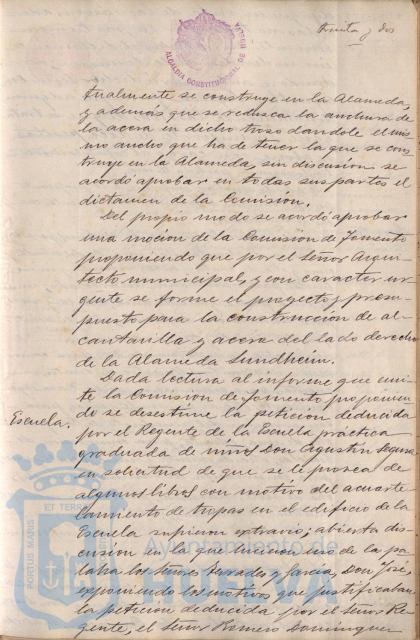 treinta y dos
ALCALDIA CONSTITUCIONAL DE HUELVA
tualmente se construye en la Alameda,
y además que se reduzca la anchura de
la acera en dicho trozo dandole el mis
mo ancho que ha de tener la que se cons
truye en la Alameda, sin discusion se
acordó aprobar en todas sus partes el
dictamen de la Comision.
Del propio modo se acordó aprobar
una mocion de la Comision de Fomento
proponiendo que por el Señor Arqui-
tecto municipal, y con caracter ur-
gente se forme el proyecto y presu-
puesto para la construccion de al-
cantarilla y acera del lado derecho
de la Alameda Sundheim.
Dada lectura al informe que emi-
te la Comision de Fomento proponien
do se desestime la peticion deducida
Escuela.
por el Regente de la Escuela práctica
graduada de niños Don Agustin Segura
en solicitud de que se le provea de
algunos libros con motivo del acuarte-
lamiento de tropas en el edificio de la
Escuela ; abierta dis-
cusion en la que hicieron uso de la pa-
labra los Señores y Garcia, Don José,
exponiendo los motivos que justificaban
la peticion deducida por el Señor Re-
gente, el Señor Romero Dominguez
PORTUS MARIS
ET TERRÆ
Ayuntamiento de
HUELVA